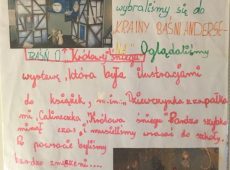 wybraliśmy się do
KRAINY BAŚNI ANDERSE-
NA Oglądaliśmy
BAŚŃ O Królowej Śniegu
wystawę, która była ilustracjami
do książek, m.in. Dziewczynka z zapałka
mi, Calineczka, Królowa śniegu Bardzo szybko
minął czas, i musieliśmy wracać do szkoły.
Po powrocie byliśmy
bardzo zmęczeni....